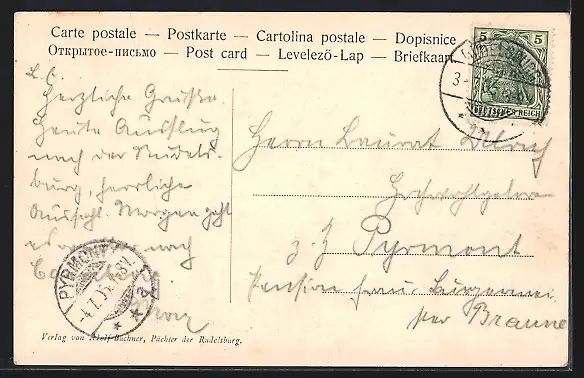 Carte postale — Postkarte — Cartolina postale — Dopisnice
Открытое-письмо — Post card — Levelező-Lap — Briefkaart
5 5
DEUTSCHES REICH
L. C.
Herzliche Grüße.
Heute Ausflug
nach der Rudels-
burg, herrliche
Aussicht. Morgen geht
es nach
Herrn Baurat
Hochwohlgeboren
z. Z. Pyrmont
Pension Frau Bürgermei
ster Braune
PYRMONT
Verlag von Adolf Büchner, Pächter der Rudelsburg.